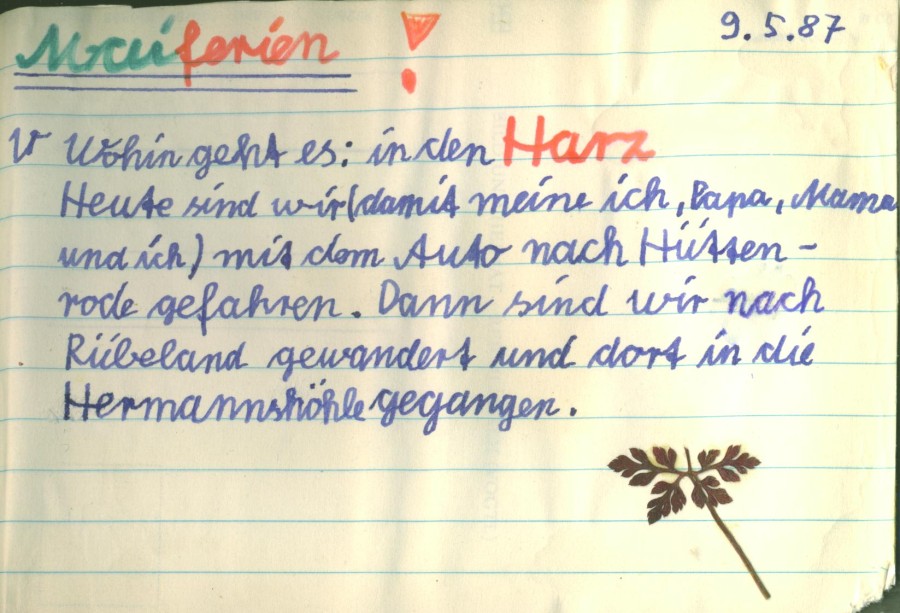 Maiferien !
9.5.87
V Wohin geht es: in den Harz
Heute sind wir (damit meine ich, Papa, Mama
und ich) mit dem Auto nach Hütten-
rode gefahren. Dann sind wir nach
Rübeland gewandert und dort in die
Hermannshöhle gegangen.